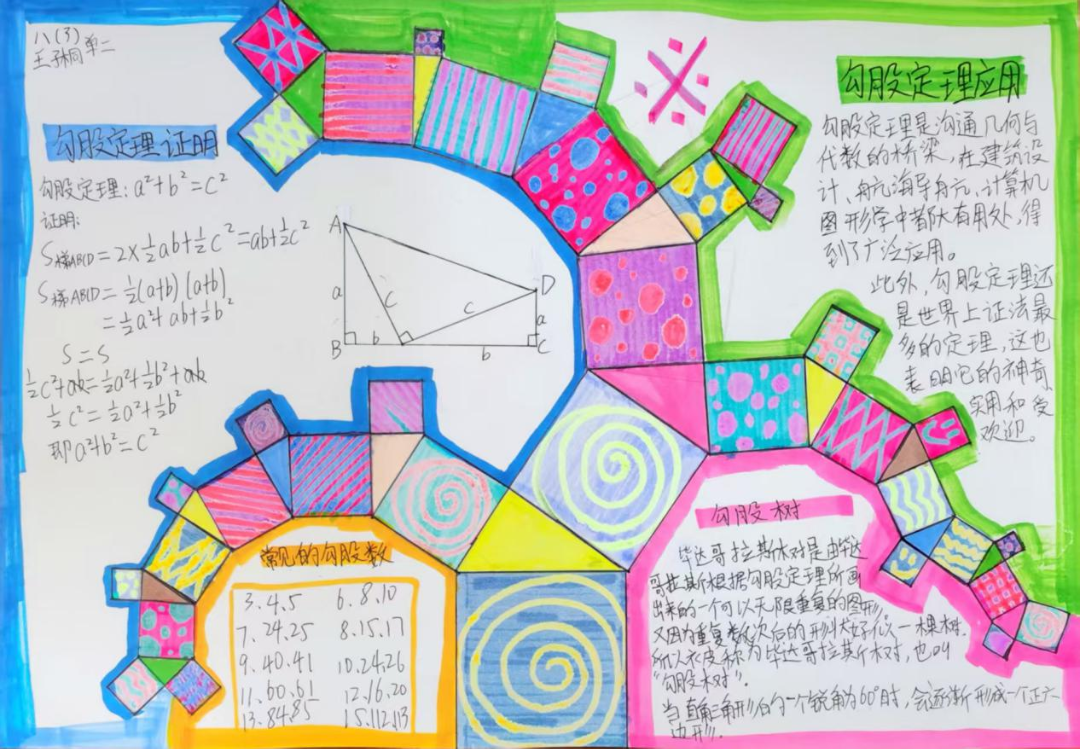 八(3)
王孙桐 单二
勾股定理证明
勾股定理：a²+b²=c²
证明：
S梯ABCD=2×½ab+½c²=ab+½c²
S梯ABCD=½(a+b)(a+b)
=½a²+ab+½b²
S=S
½c²+ab=½a²+½b²+ab
½c²=½a²+½b²
即a²+b²=c²
A
D
a
c
c
a
B
b
b
C
勾股定理应用
勾股定理是沟通几何与
代数的桥梁，在建筑设
计、航海导航、计算机
图形学中都大有用处，得
到了广泛应用。
此外，勾股定理还
是世界上证法最
多的定理，这也
表明它的神奇
实用和受
欢迎。
常见的勾股数
3.4.5 6.8.10
7.24.25 8.15.17
9.40.41 10.24.26
11.60.61 12.16.20
13.84.85 15.112.113
勾股树
毕达哥拉斯树是由毕达
哥拉斯根据勾股定理所画
出来的一个可以无限重复的图形，
又因为重复数次后的形状好似一棵树，
所以被称为毕达哥拉斯树，也叫
“勾股树”。
当直角三角形的一个锐角为60°时，会逐渐形成一个正六
边形。